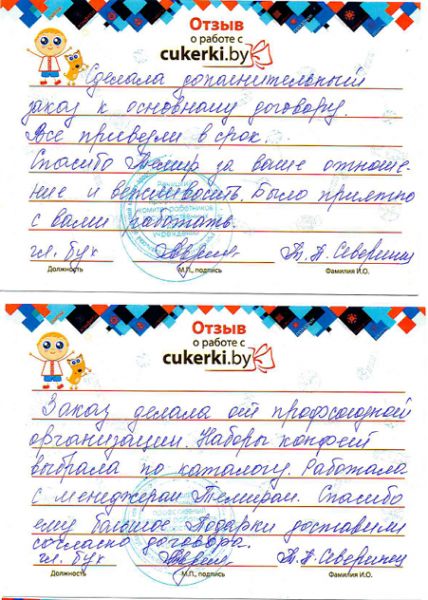 Отзыв
о работе с
cukerki.by
Сделала дополнительный
заказ к основному договору.
Все привезли в срок.
Спасибо Темир за ваше отноше-
ние и вежливость. Было приятно
с вами работать.
гл. бух
Должность
М.П., подпись
Фамилия И.О.
Отзыв
о работе с
cukerki.by
Заказ делала от профсоюзной
организации. Наборы конфет
выбрала по каталогу. Работала
с менеджерам Темирам. Спасибо
ему большое. Подарки доставили
согласно договора.
гл. бух
Должность
М.П., подпись
Фамилия И.О.